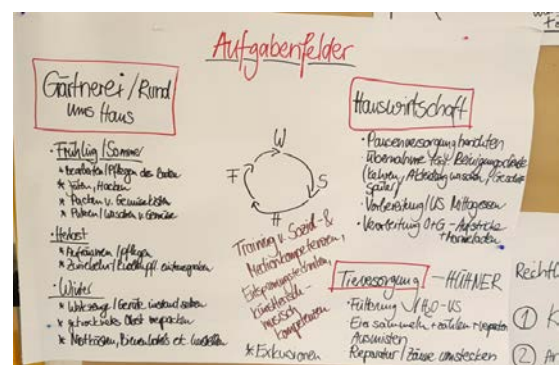 Aufgabenfelder
Gärtnerei/Rund
ums Haus
• Frühling/Sommer
* Bearbeiten/Pflegen des Bodens
* Jäten, Hacken
* Packen v. Gemüsekisten
* Putzen/waschen v. Gemüse
• Herbst
* Aufräumen/pflegen
* Zwiebeln
• Winter
* Werkzeug/Geräte instand setzen
* getrocknetes Obst verpacken
* Nistkästen, Bienenhotels etc.
W
F
S
H
Training v. Sozial- &
Medienkompetenzen,
Entspannungstechniken,
künstlerisch-
musisch
kompetenzen
* Exkursionen
Hauswirtschaft
• Pausenversorgung herrichten
• Übernahme Reinigungsdienste
(kehren, waschen, Geschirr
spülen)
• Vorbereitung/US Mittagessen
• Verarbeitung O+G - Aufstriche
+ Marmeladen
Tierversorgung — HÜHNER
• Fütterung / H₂O-VS
Eier sammeln + zählen +
Ausmisten
Reparatur/Zäune umstecken
Rechtl
① K
② Ar